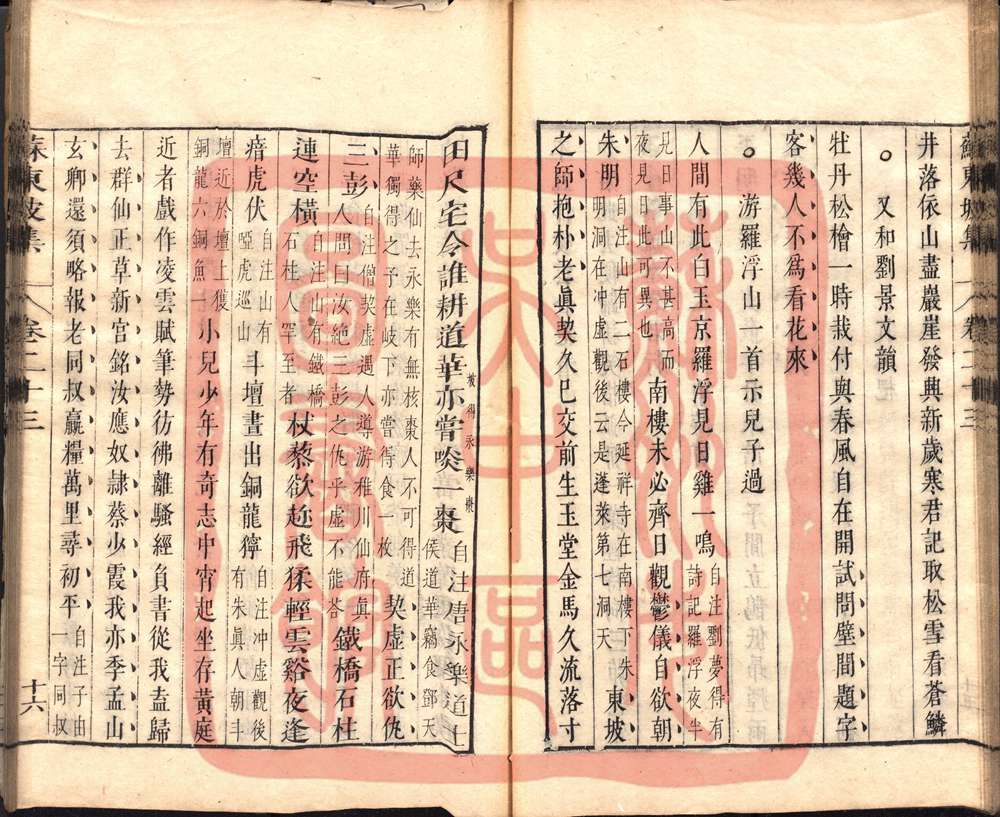 蘇東坡集 卷二十三
井落依山盡巖崖發興新歲寒君記取松雪看蒼鱗
。又和劉景文韻
牡丹松檜一時栽付與春風自在開試問壁間題字
客幾人不爲看花來
。游羅浮山一首示兒子過
人間有此白玉京羅浮見日雞一鳴自注劉夢得有詩記羅浮夜半
見日事山不甚高而夜見日此可異也南樓未必齊日觀鬱儀自欲朝
朱明自注山有二石樓今延祥寺在南樓下朱明洞在沖虛觀後云是蓬萊第七洞天東坡
之師抱朴老眞契久已交前生玉堂金馬久流落寸
田尺宅今誰耕道華亦嘗啖一棗自注唐永樂道士侯道華竊食鄧天
師藥仙去永樂有無核棗人不可得道華獨得之予在岐下亦嘗得食一枚契虛正欲仇
三彭自注僧契虛遇人導游稚川仙府眞人問曰汝絕三彭之仇乎虛不能答鐵橋石柱
連空橫自注山有鐵橋石柱人罕至者杖藜欲趂飛猱輕雲谿夜逢
瘖虎伏自注山有啞虎巡山斗壇晝出銅龍獰自注沖虛觀後有朱眞人朝斗
壇近於壇上獲銅龍六銅魚一小兒少年有奇志中宵起坐存黃庭
近者戲作凌雲賦筆勢彷彿離騷經負書從我盍歸
去群仙正草新宮銘汝應奴隸蔡少霞我亦季孟山
玄卿還須略報老同叔贏糧萬里尋初平自注子由一字同叔
蘇東坡集 卷二十三 十六